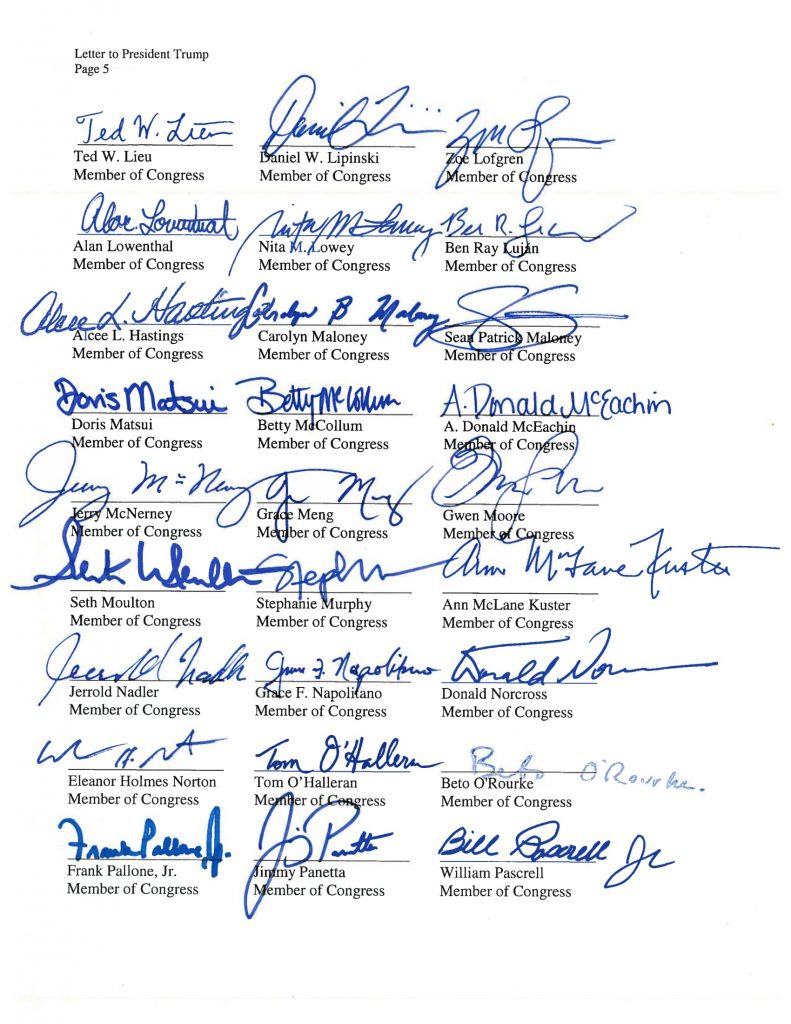 Letter to President Trump
Page 5
Ted W. Lieu
Ted W. Lieu
Member of Congress
Daniel W. Lipinski
Member of Congress
Zoe Lofgren
Member of Congress
Alan Lowenthal
Alan Lowenthal
Member of Congress
Nita M. Lowey
Nita M. Lowey
Member of Congress
Ben R. Luján
Ben Ray Luján
Member of Congress
Alcee L. Hastings
Alcee L. Hastings
Member of Congress
Carolyn B Maloney
Carolyn Maloney
Member of Congress
Sean Patrick Maloney
Member of Congress
Doris Matsui
Doris Matsui
Member of Congress
Betty McCollum
Betty McCollum
Member of Congress
A. Donald McEachin
A. Donald McEachin
Member of Congress
Jerry McNerney
Jerry McNerney
Member of Congress
Grace Meng
Member of Congress
Gwen Moore
Member of Congress
Seth Moulton
Seth Moulton
Member of Congress
Stephanie Murphy
Member of Congress
Ann McLane Kuster
Ann McLane Kuster
Member of Congress
Jerrold Nadler
Jerrold Nadler
Member of Congress
Grace F. Napolitano
Grace F. Napolitano
Member of Congress
Donald Norcross
Donald Norcross
Member of Congress
Eleanor Holmes Norton
Member of Congress
Tom O'Halleran
Tom O'Halleran
Member of Congress
Beto O'Rourke.
Beto O'Rourke
Member of Congress
Frank Pallone Jr.
Frank Pallone, Jr.
Member of Congress
Jimmy Panetta
Jimmy Panetta
Member of Congress
Bill Pascrell Jr
William Pascrell
Member of Congress